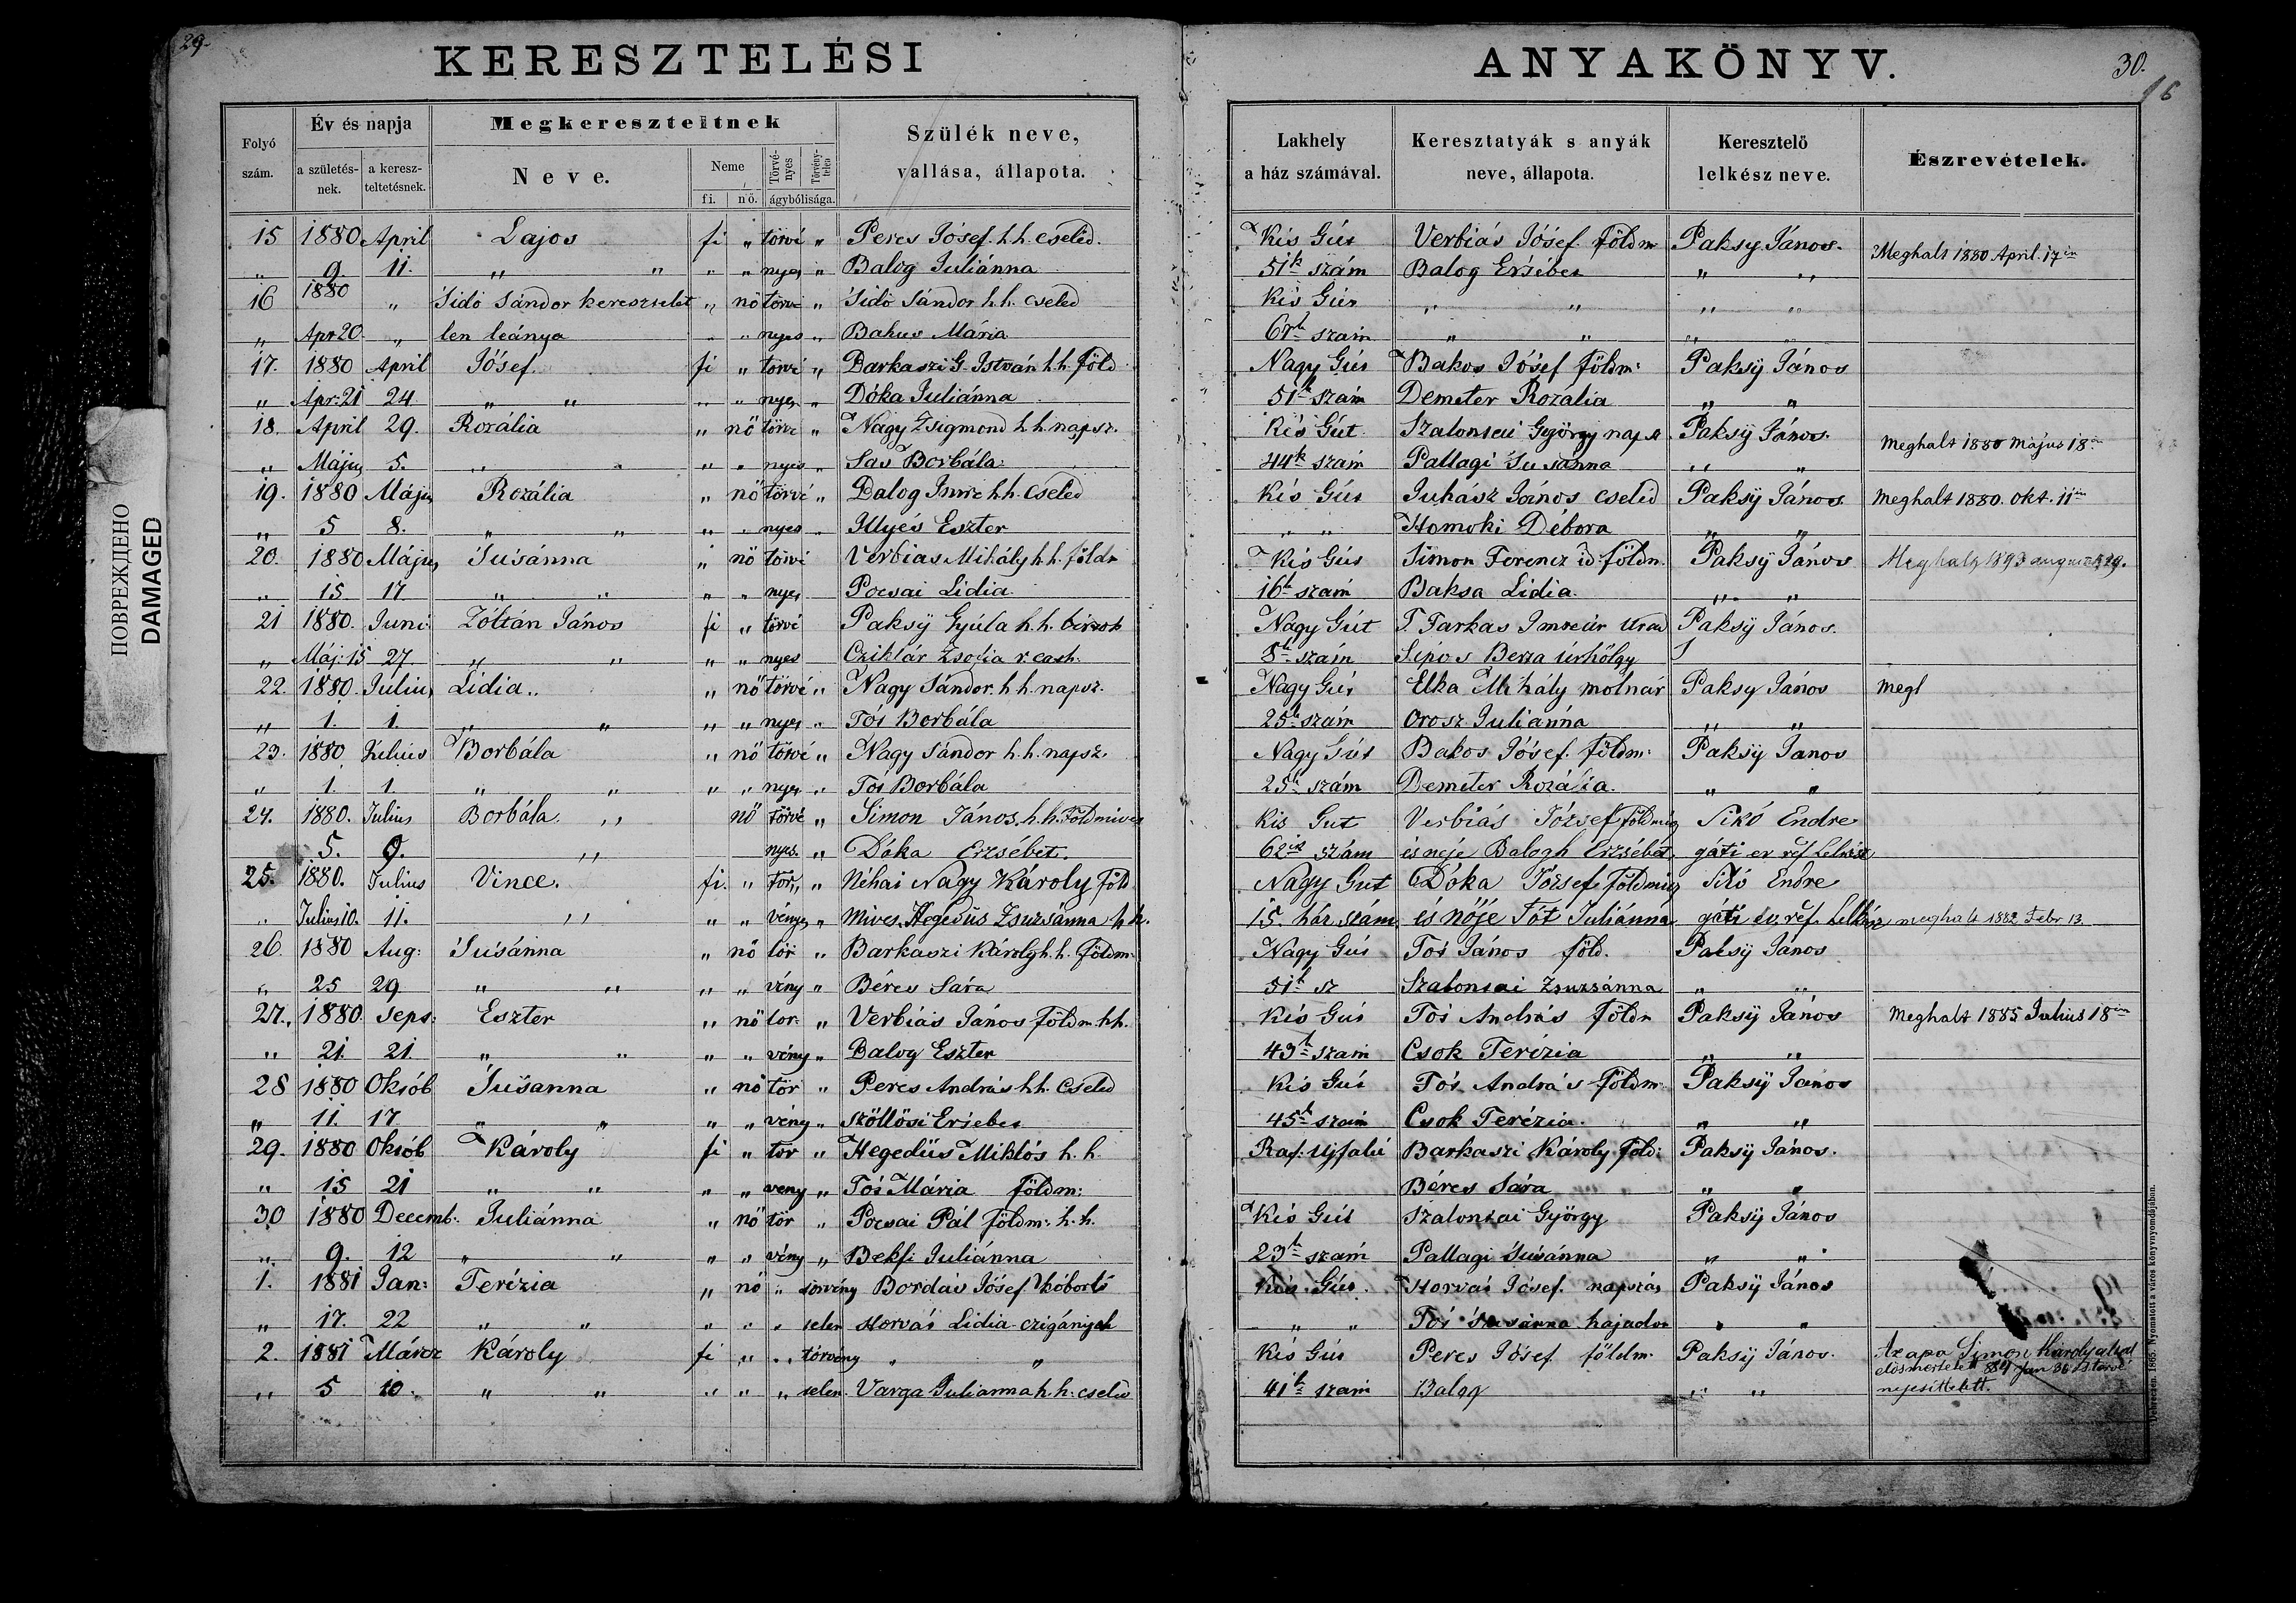 29.
KERESZTELÉSI
ANYAKÖNYV.
30.
16
ПОВРЕЖДЕНО
DAMAGED
Folyó szám.
Év és napja
a születés-nek.
a keresz-teltetésnek.
Megkereszteltnek
Neve.
Neme
fi.
nő.
Törvé-nyes
Törvény-telen
ágybólisága.
Szülék neve,
vallása, állapota.
Lakhely
a ház számával.
Keresztatyák s anyák
neve, állapota.
Keresztelő
lelkész neve.
Észrevételek.
15 1880 April Lajos fi „ törvé „ Peres Jósef h.h. cseléd. Kis Gút Verbiás Jósef földm Paksy János. Meghalt 1880 April. 17én
„ 9. 11. „ „ „ „ nyes „ Balog Juliánna 51k szám Balog Ersébet „ „
16 1880 „ Sidó Sándor keresztelet „ nő törvé „ Sidó Sándor h.h. cseléd Kis Gút „ „ „ „
„ Apr 20. „ len leánya „ „ nyes „ Bakus Mária szám „ „ „ „
17. 1880 April Jósef fi „ törvé „ Barkaszi G. István h.h. föld Nagy Gút Bakos Jósef földm: Paksÿ János
„ Apr: 21 24 „ „ „ „ nyes „ Dóka Juliánna 51k szám Demeter Rozália „ „
18. April 29. Rozália „ nő törvé „ Nagy Zsigmond h.h. napsz. Kis Gút Szalontai György naps Paksÿ János. Meghalt 1880 Május 18án
„ Május 5. „ „ „ „ nyes „ Sas Borbála: 44k szám Pallagi Susánna „ „
19. 1880 Május Rozália „ nő törvé „ Balog Imre h.h. cseléd Kis Gút Juhász János cseléd Paksÿ János Meghalt 1880. Okt. 11én
„ 5 8. „ „ „ „ nyes „ Illyés Eszter „ „ Homoki Débora „ „
20. 1880 Május Susánna „ nő törvé Verbias Mihály h.h. földm Kis Gút Simon Ferencz id földm. Paksÿ János Meghalt 1893 augusztus 29.
„ 15 17 „ „ „ „ nyes Pocsai Lidia 16k szám Baksa Lidia. „ „
21 1880. Juni: Zóltán János fi „ törvé Paksÿ Gyúla h.h. birtok Nagy Gút T. Farkas Imre úr Urad Paksÿ János.
„ Máj: 15 27. „ „ „ „ nyes Cziklár Zsofia r. cath. 8k szám Sipos Berta úrhölgy
22. 1880. Július Lidia „ „ nő törvé „ Nagy Sándor h.h. napsz. Nagy Gút Elka Mihály molnár Paksy János Megl
„ 1. 1. „ „ „ „ nyes „ Tót Borbála 25k szám Orosz Juliánna „ „
23. 1880 Július Borbála „ nő törvé „ Nagy Sándor h.h. napsz. Nagy Gút Bakos Jósef. földm: Paksÿ János
„ 1. 1. „ „ „ „ nyes „ Tót Borbála 25k szám Demeter Rozália. „ „
24. 1880. Julius Borbála. „ nő törvé „ Simon János. h.h. Földmíves Kis Gut Verbiás József földmíves Sikó Endre
5. 9. „ nyes. „ Dóka Erzsébet. 62ik szám és neje Balogh Erzsébet gáti ev réf Lelkész
25. 1880. Julius Vince. fi. „ Tör „ „ Néhai Nagy Károly föld Nagy Gut Dóka József földmíves Sikó Endre
„ Julius 10. 11. „ „ „ vényes „ míves, Hegedüs Zsuzsánna h.h. 15. ház szám és nője Tót Juliánna gáti ev. réf. Lelkész meghalt 1882 Febr 13.
26. 1880 Aug: Susánna „ nő tör „ Barkaszi Károly h.h. földm: Nagy Gút Tót János föld. Paksÿ János
„ 25 29 „ „ „ „ vény „ Béres Sára 51k sz Szalontai Zsuzsánna „ „
27. 1880. Sept: Eszter „ nő tör: „ Verbiás János földm. hh. Kis Gút Tót András földm Paksÿ János Meghalt 1885 Julius 18án
„ 21. 21. „ „ „ „ vény „ Balog Eszter 43k szám Csok Terézia „ „
28 1880 Októb Susanna „ nő tör „ Peres András h.h. Cseléd Kis Gút Tót András földm: Paksÿ János
„ 11. 17. „ „ „ „ vény „ Szöllösi Ersébet 45k szám Csok Terézia. „ „
29. 1880 Októb Károly fi „ tör „ Hegedüs Miklós h.h. Raf: Ujfalú Barkaszi Károly föld: Paksÿ János.
„ 15 21 „ „ „ „ vény „ Tót Mária földm: Béres Sára „ „
30 1880 Decemb: Juliánna „ nő tör „ Pocsai Pál földm: h.h. Kis Gút Szalontai György Paksÿ János
„ 9. 12 „ „ „ „ vény „ Bekfi Juliánna 23k szám Pallagi Susánna „ „
1. 1881 Jan: Terézia „ nő „ törvény Bordás Jósef kóborló Kis Gút. Horvát Jósef. napszás Paksÿ János
„ 17. 22 „ „ „ „ „ telen Horvát Lidia czigányok „ „ Tót Susánna hajadon „ „
2. 1881 Márcz Károly fi „ „ törvény „ „ Kis Gút Peres Jósef földm. Paksÿ János. Az apa Simon Károly által elösmertetett 884 Jan 30 s törvé
„ 5 10. „ „ „ „ „ telen. Varga Julianna h.h: cseléd 41k szám Balog „ „ nyesíttetett.
Debreczen. 1865. Nyomatott a város könyvnyomdájában.